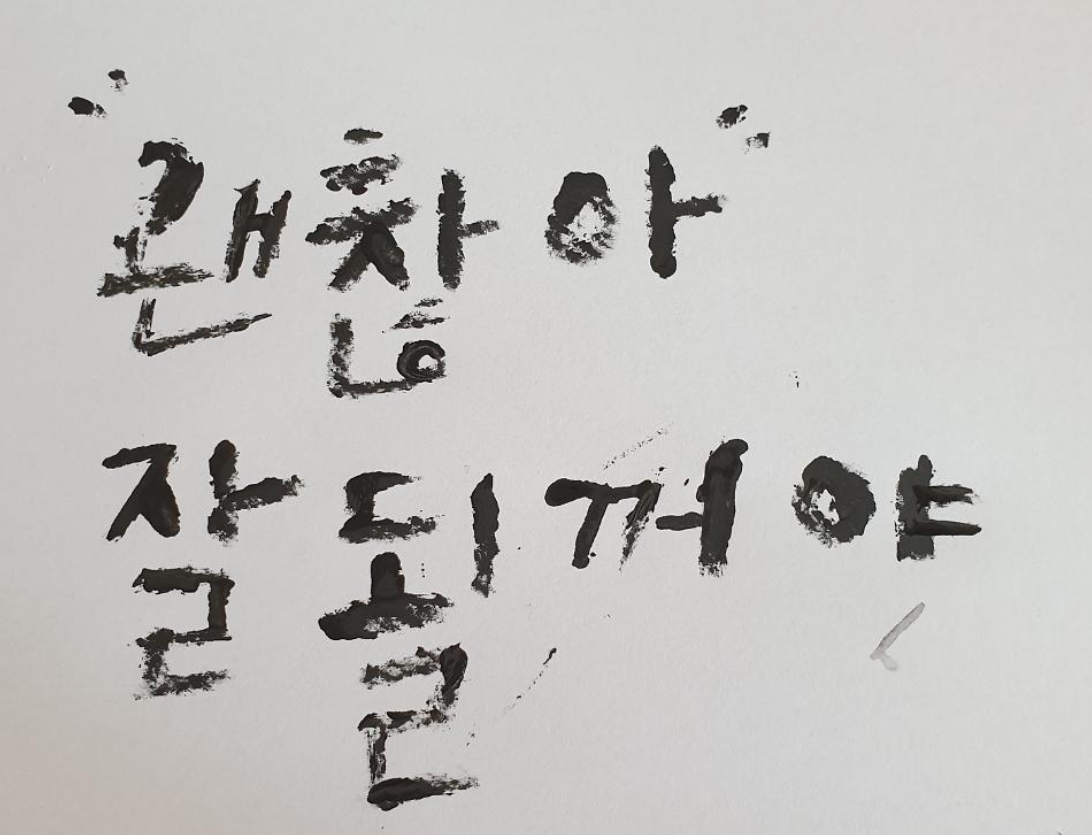 "괜찮아"
잘될꺼야